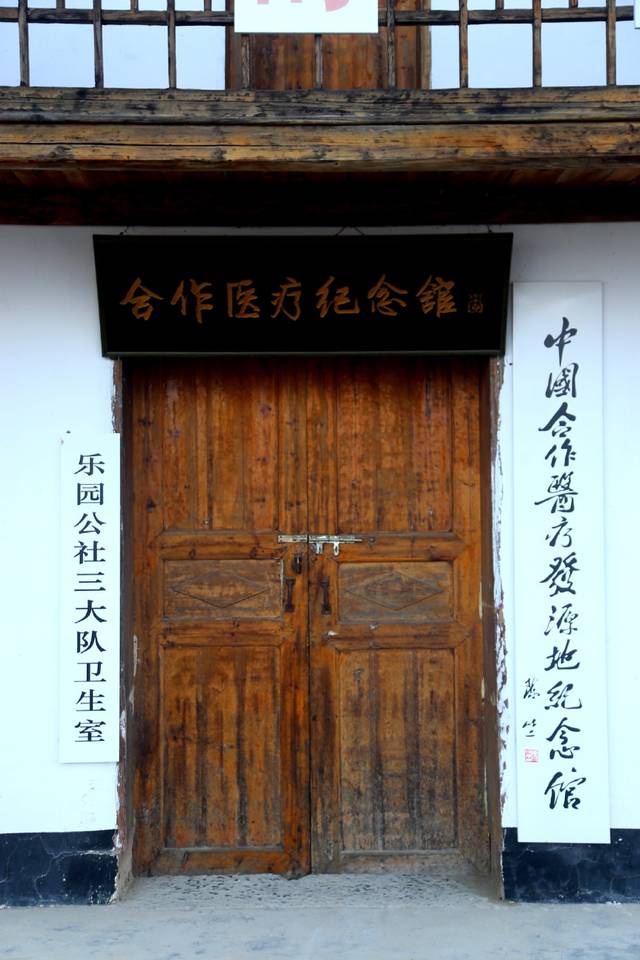 合作医疗纪念馆
乐园公社三大队卫生室
中國合作醫疗發源地紀念馆